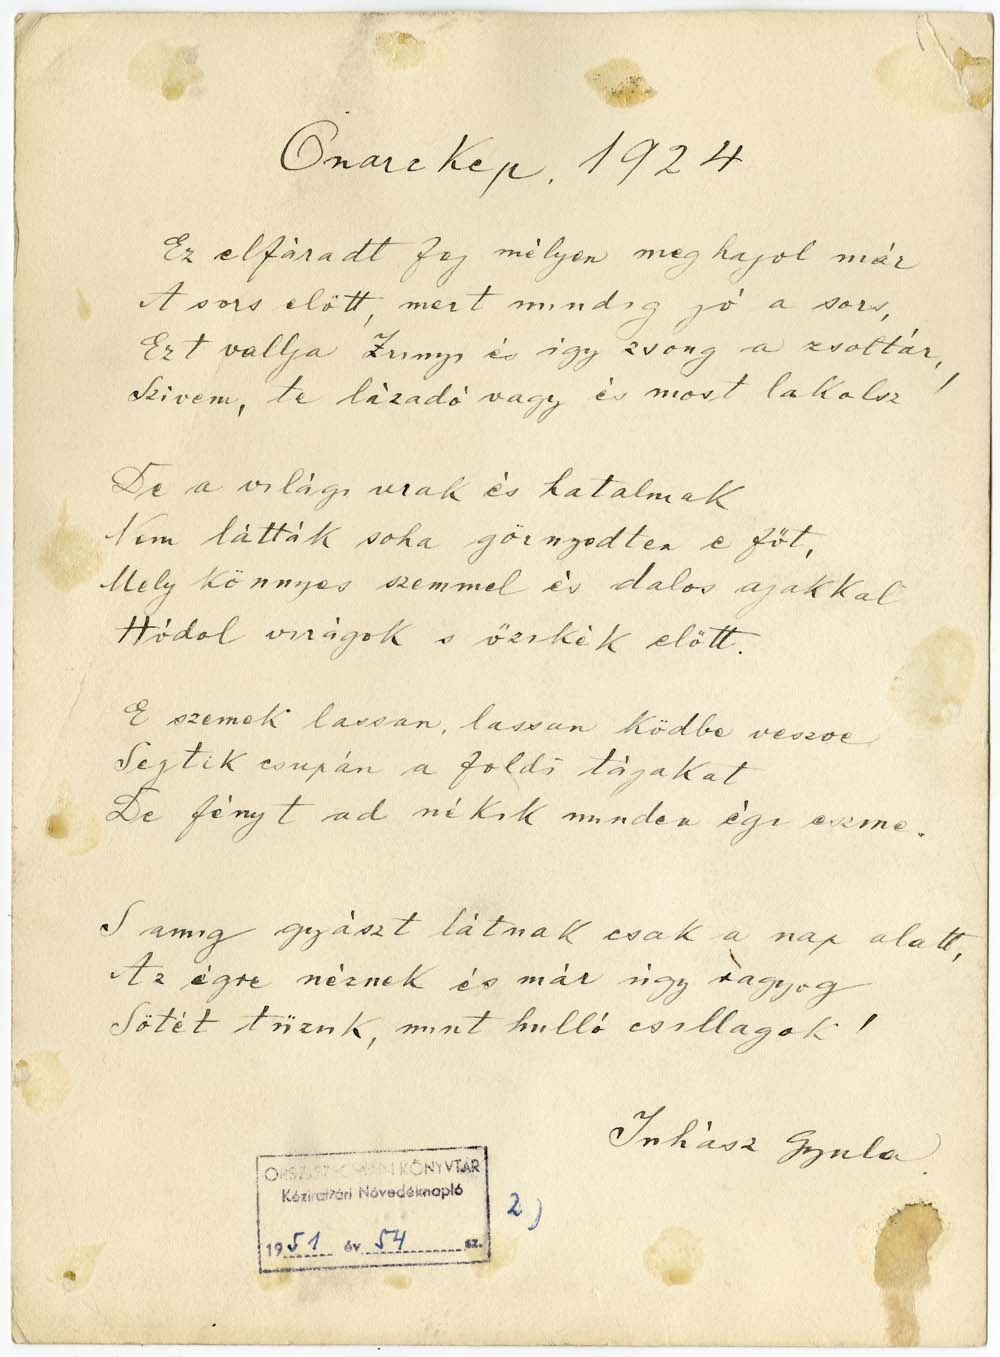 Önarckép, 1924
Ez elfáradt fej mélyen meghajol már
A sors előtt, mert mindig jó a sors,
Ezt vallja Zrinyi és igy zsong a zsoltár,
Szivem, te lázadó vagy és most lakolsz!
De a világi urak és hatalmak
Nem látták soha görnyedten e főt,
Mely könnyes szemmel és dalos ajakkal
Hódol virágok s őzikék előtt.
E szemek lassan, lassan ködbe veszve
Sejtik csupán a földi tájakat
De fényt ad nékik minden égi eszme.
S amig gyászt látnak csak a nap alatt,
Az égre néznek és már úgy ragyog
Sötét tüzük, mint hulló csillagok!
Juhász Gyula
ORSZ. SZÉCHÉNYI KÖNYVTÁR
Kézirattári Növedéknapló
1951 év 54 sz.
2)